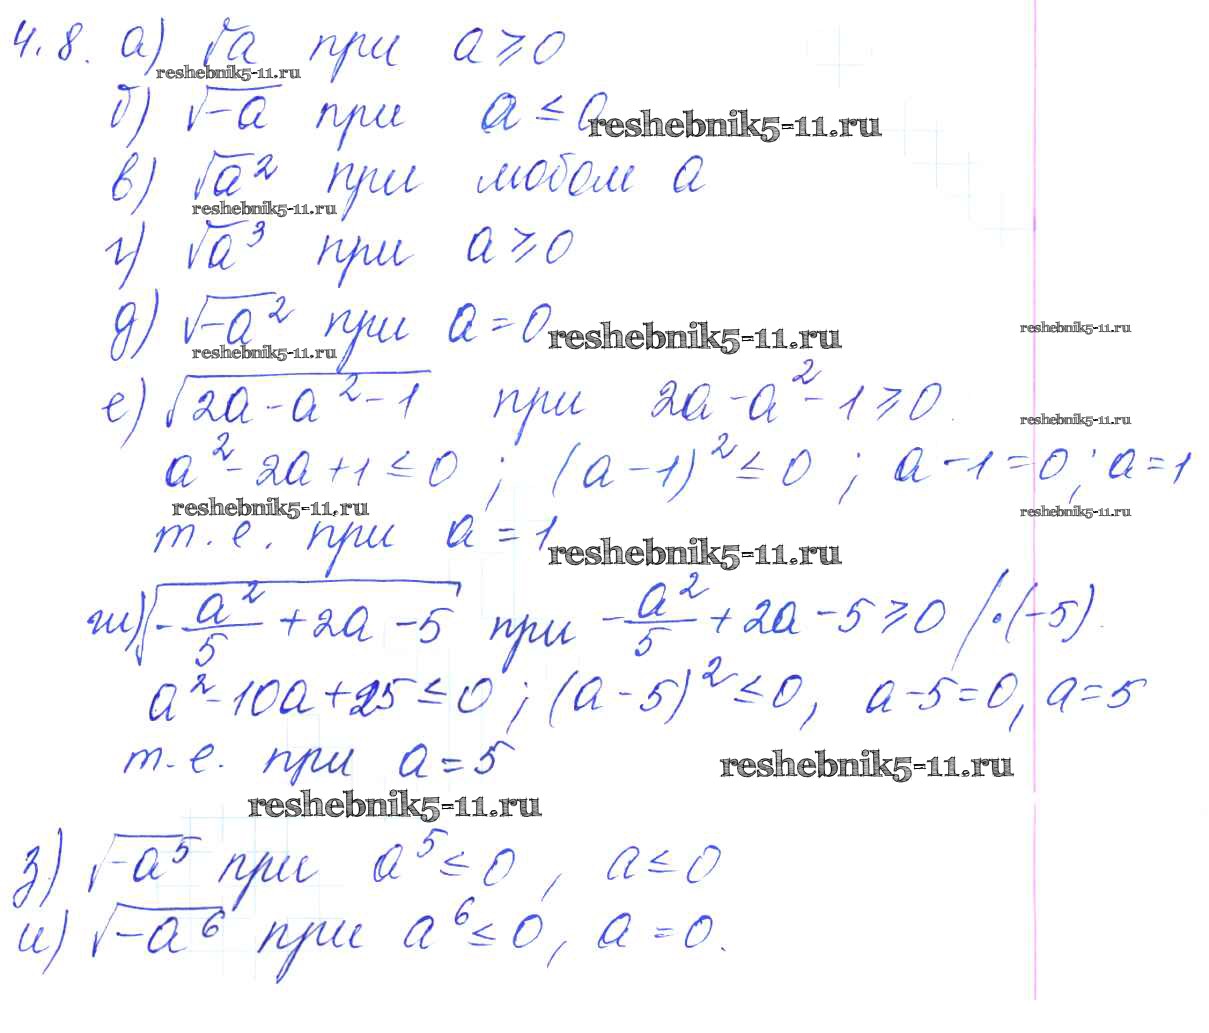 4.8. а) √a при a ≥ 0
reshebnik5-11.ru
б) √-a при a ≤ 0
reshebnik5-11.ru
в) √a² при любом a
reshebnik5-11.ru
г) √a³ при a ≥ 0
д) √-a² при a = 0
reshebnik5-11.ru
reshebnik5-11.ru
reshebnik5-11.ru
е) √2a - a² - 1 при 2a - a² - 1 ≥ 0.
reshebnik5-11.ru
a² - 2a + 1 ≤ 0 ; (a - 1)² ≤ 0 ; a - 1 = 0 ; a = 1
reshebnik5-11.ru
reshebnik5-11.ru
т.е. при a = 1
reshebnik5-11.ru
ж) √-a²/5 + 2a - 5 при -a²/5 + 2a - 5 ≥ 0 /·(-5).
a² - 10a + 25 ≤ 0 ; (a - 5)² ≤ 0, a - 5 = 0, a = 5
т.е. при a = 5
reshebnik5-11.ru
reshebnik5-11.ru
з) √-a⁵ при a⁵ ≤ 0 , a ≤ 0
и) √-a⁶ при a⁶ ≤ 0, a = 0.